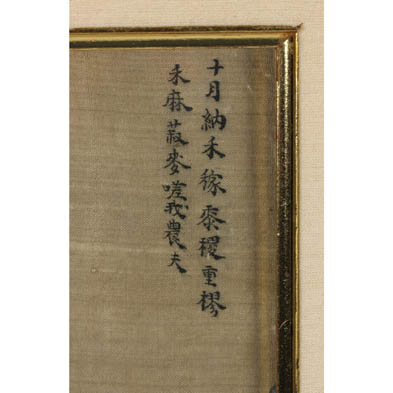 十月納禾稼黍稷重穋
禾麻菽麥嗟我農夫